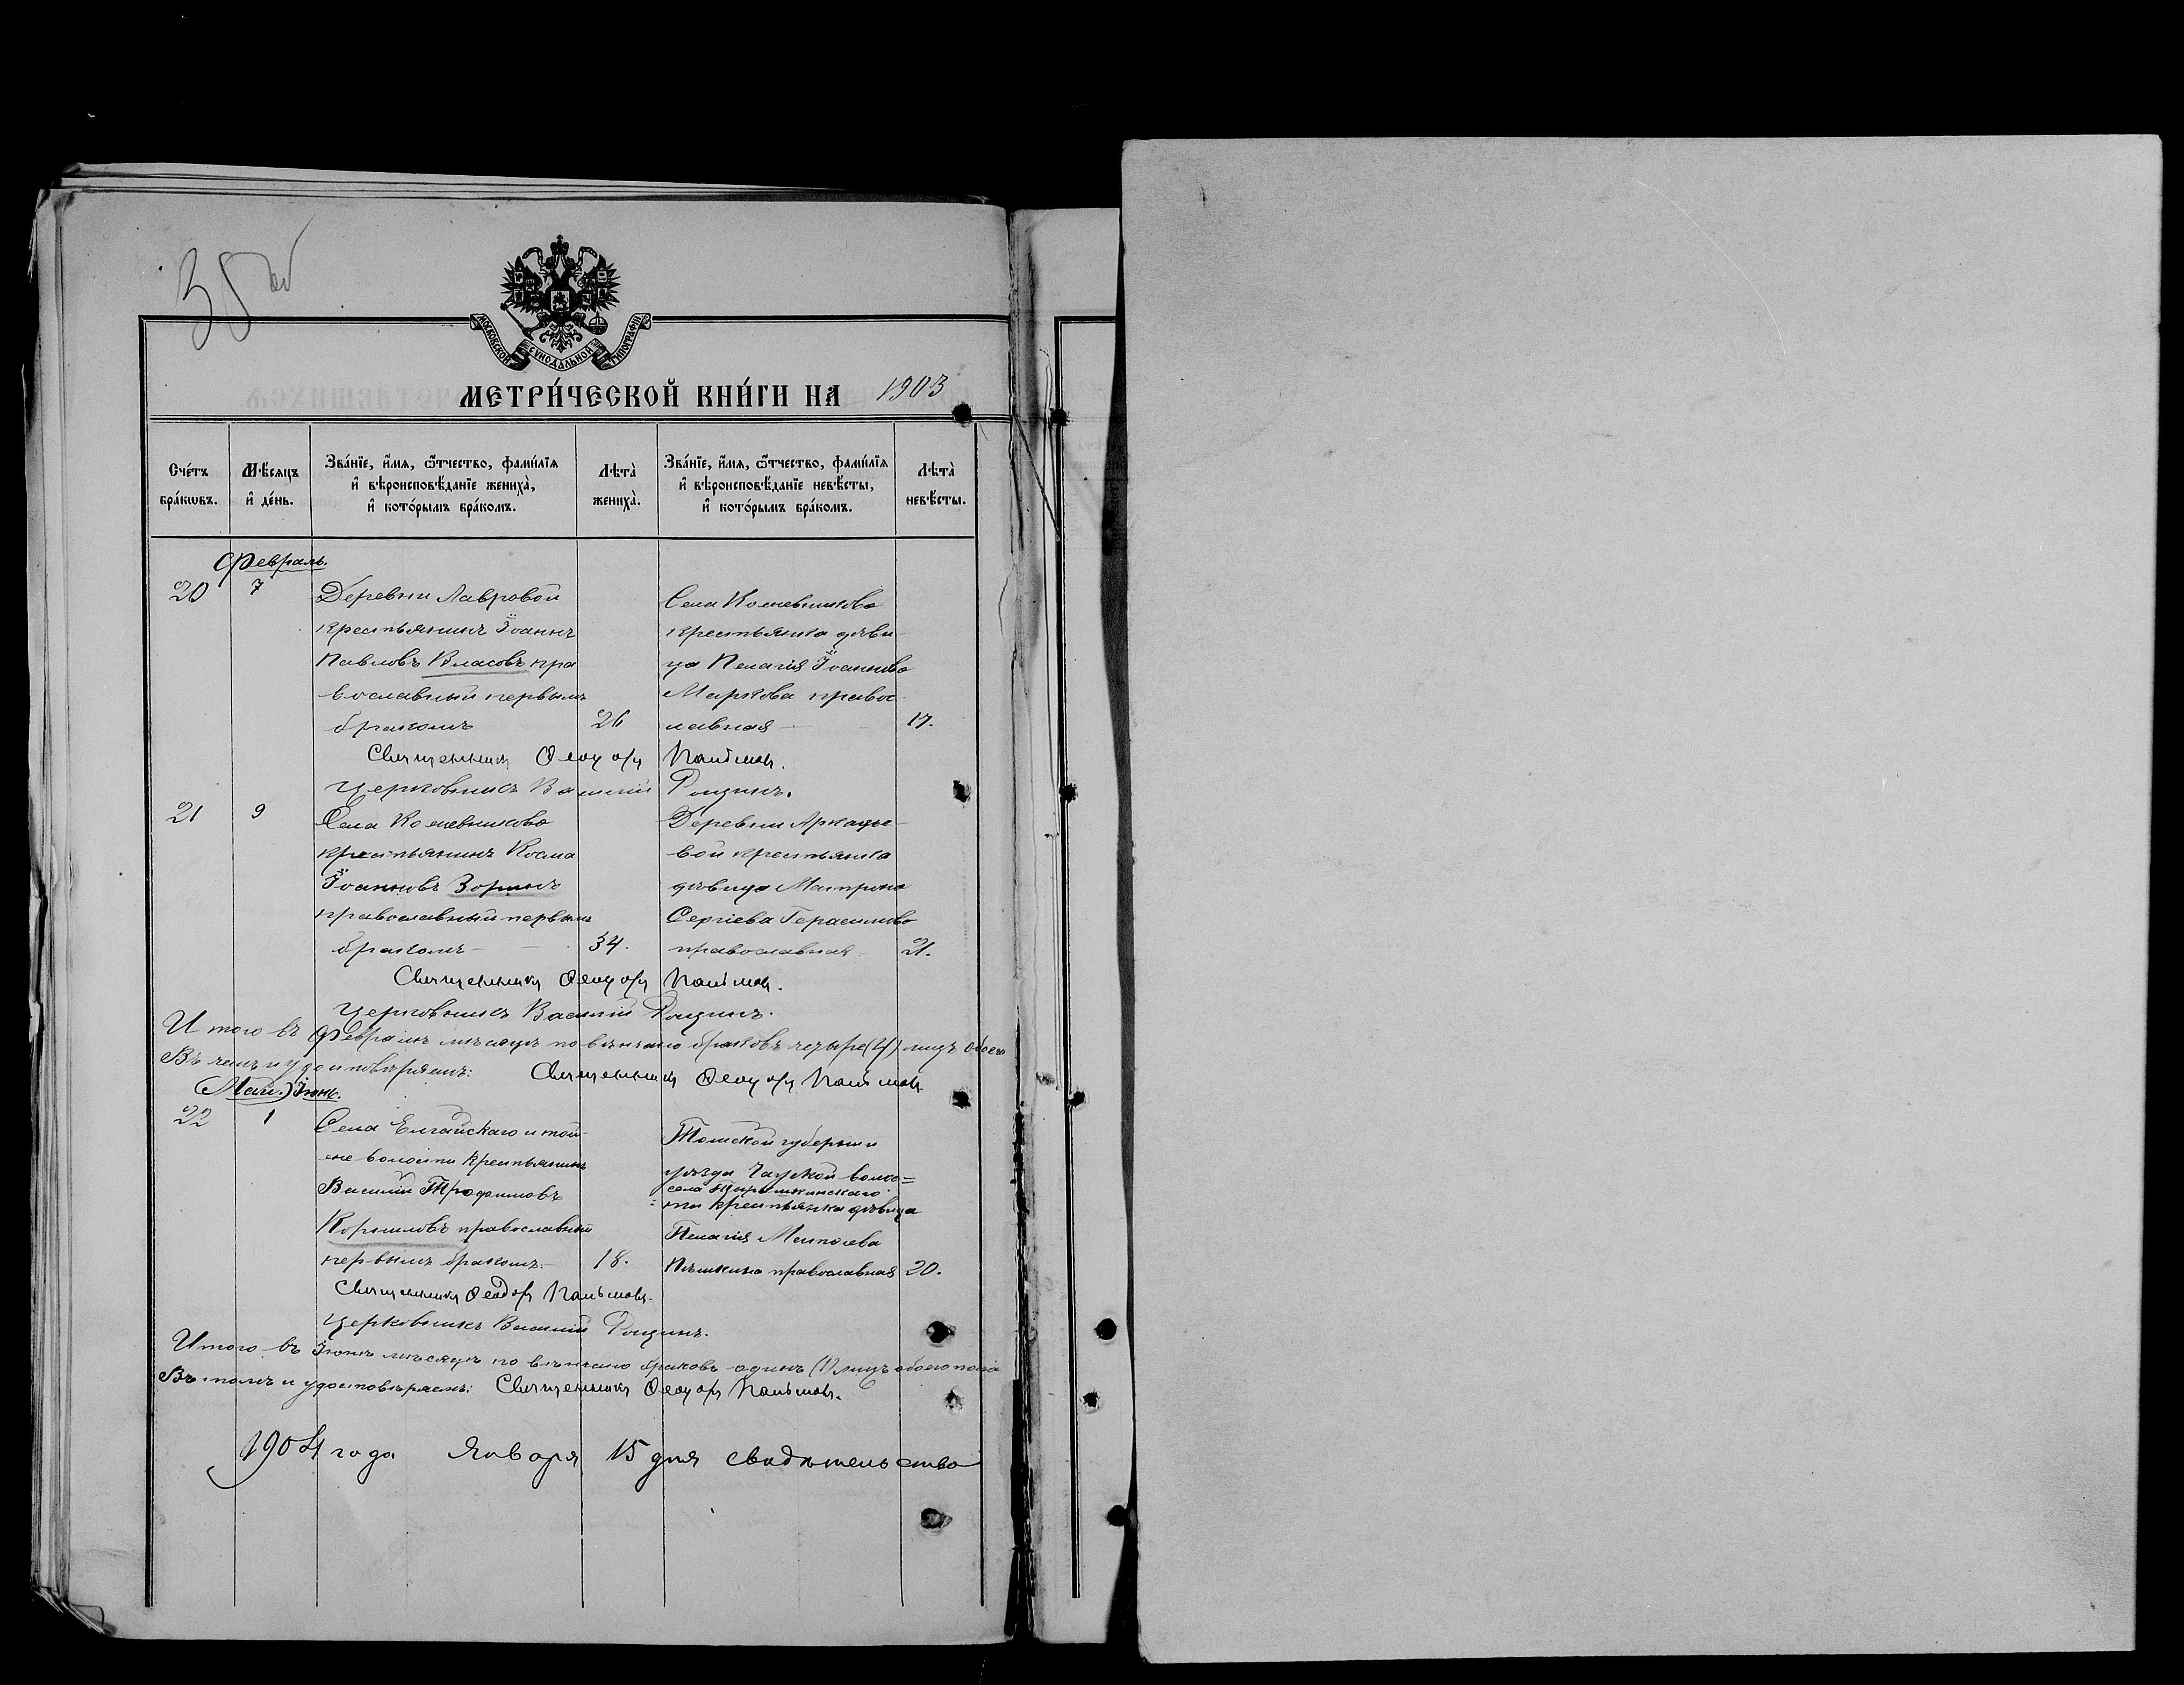 МОСКОВСКОЙ СѴНОДАЛЬНОЙ ТИПОГРАФІИ
МЕТРИ́ЧЕСКОЙ КНИ́ГИ НА 1903
Сче́тъ бра́кωвъ.
Мѣ́сяцъ и҆ де́нь.
Зва́нїе, и҆́мѧ, ѻ҆́тчество, фами́лїѧ и҆ вѣроисповѣ́данїе жениха̀, и҆ кото́рымъ бра́комъ.
Лѣта̀ жениха̀.
Зва́нїе, и҆́мѧ, ѻ҆́тчество, фами́лїѧ и҆ вѣроисповѣ́данїе невѣ́сты, и҆ кото́рымъ бра́комъ.
Лѣта̀ невѣ́сты.
Февраль.
20 7
Деревни Лавровой
крестьянинъ Іоаннъ
Павловъ Власовъ пра
вославный первымъ
бракомъ 26
Села Кожевниково
крестьянка дѣви
ца Пелагія Іоаннова
Маркова правос
лавная 17.
Священникъ Ѳеодоръ Пальмовъ.
Церковникъ Василій Рощинъ.
21 9
Села Кожевниково
крестьянинъ Косма
Іоанновъ Зоринъ
православный первымъ
бракомъ 34.
Деревни
вой крестьянка
дѣвица Матрона
Сергіева Герасимова
православная 21.
Священникъ Ѳеодоръ Пальмовъ.
Церковникъ Василій Рощинъ.
Итого въ Февралѣ мѣсяцѣ повѣнчано браковъ четыре (4) лицъ обоего
Въ чемъ и удостовѣряемъ: Священникъ Ѳеодоръ Пальмовъ
(Май.) Іюнь.
22 1
Села Елгайскаго и той
же волости крестьянинъ
Василій Трофимовъ
Корниловъ православный
первымъ бракомъ. 18.
Томской губерніи
уѣзда Чауской волос=
села
=ти крестьянка дѣвица
Пелагія
православная 20.
Священникъ Ѳеодоръ Пальмовъ.
Церковникъ Василій Рощинъ.
Итого въ Іюнѣ мѣсяцѣ повѣнчано браковъ одинъ (1) лицъ обоего пола
Въ томъ и удостовѣряемъ: Священникъ Ѳеодоръ Пальмовъ.
1904 года Января 15 дня свидѣтельство